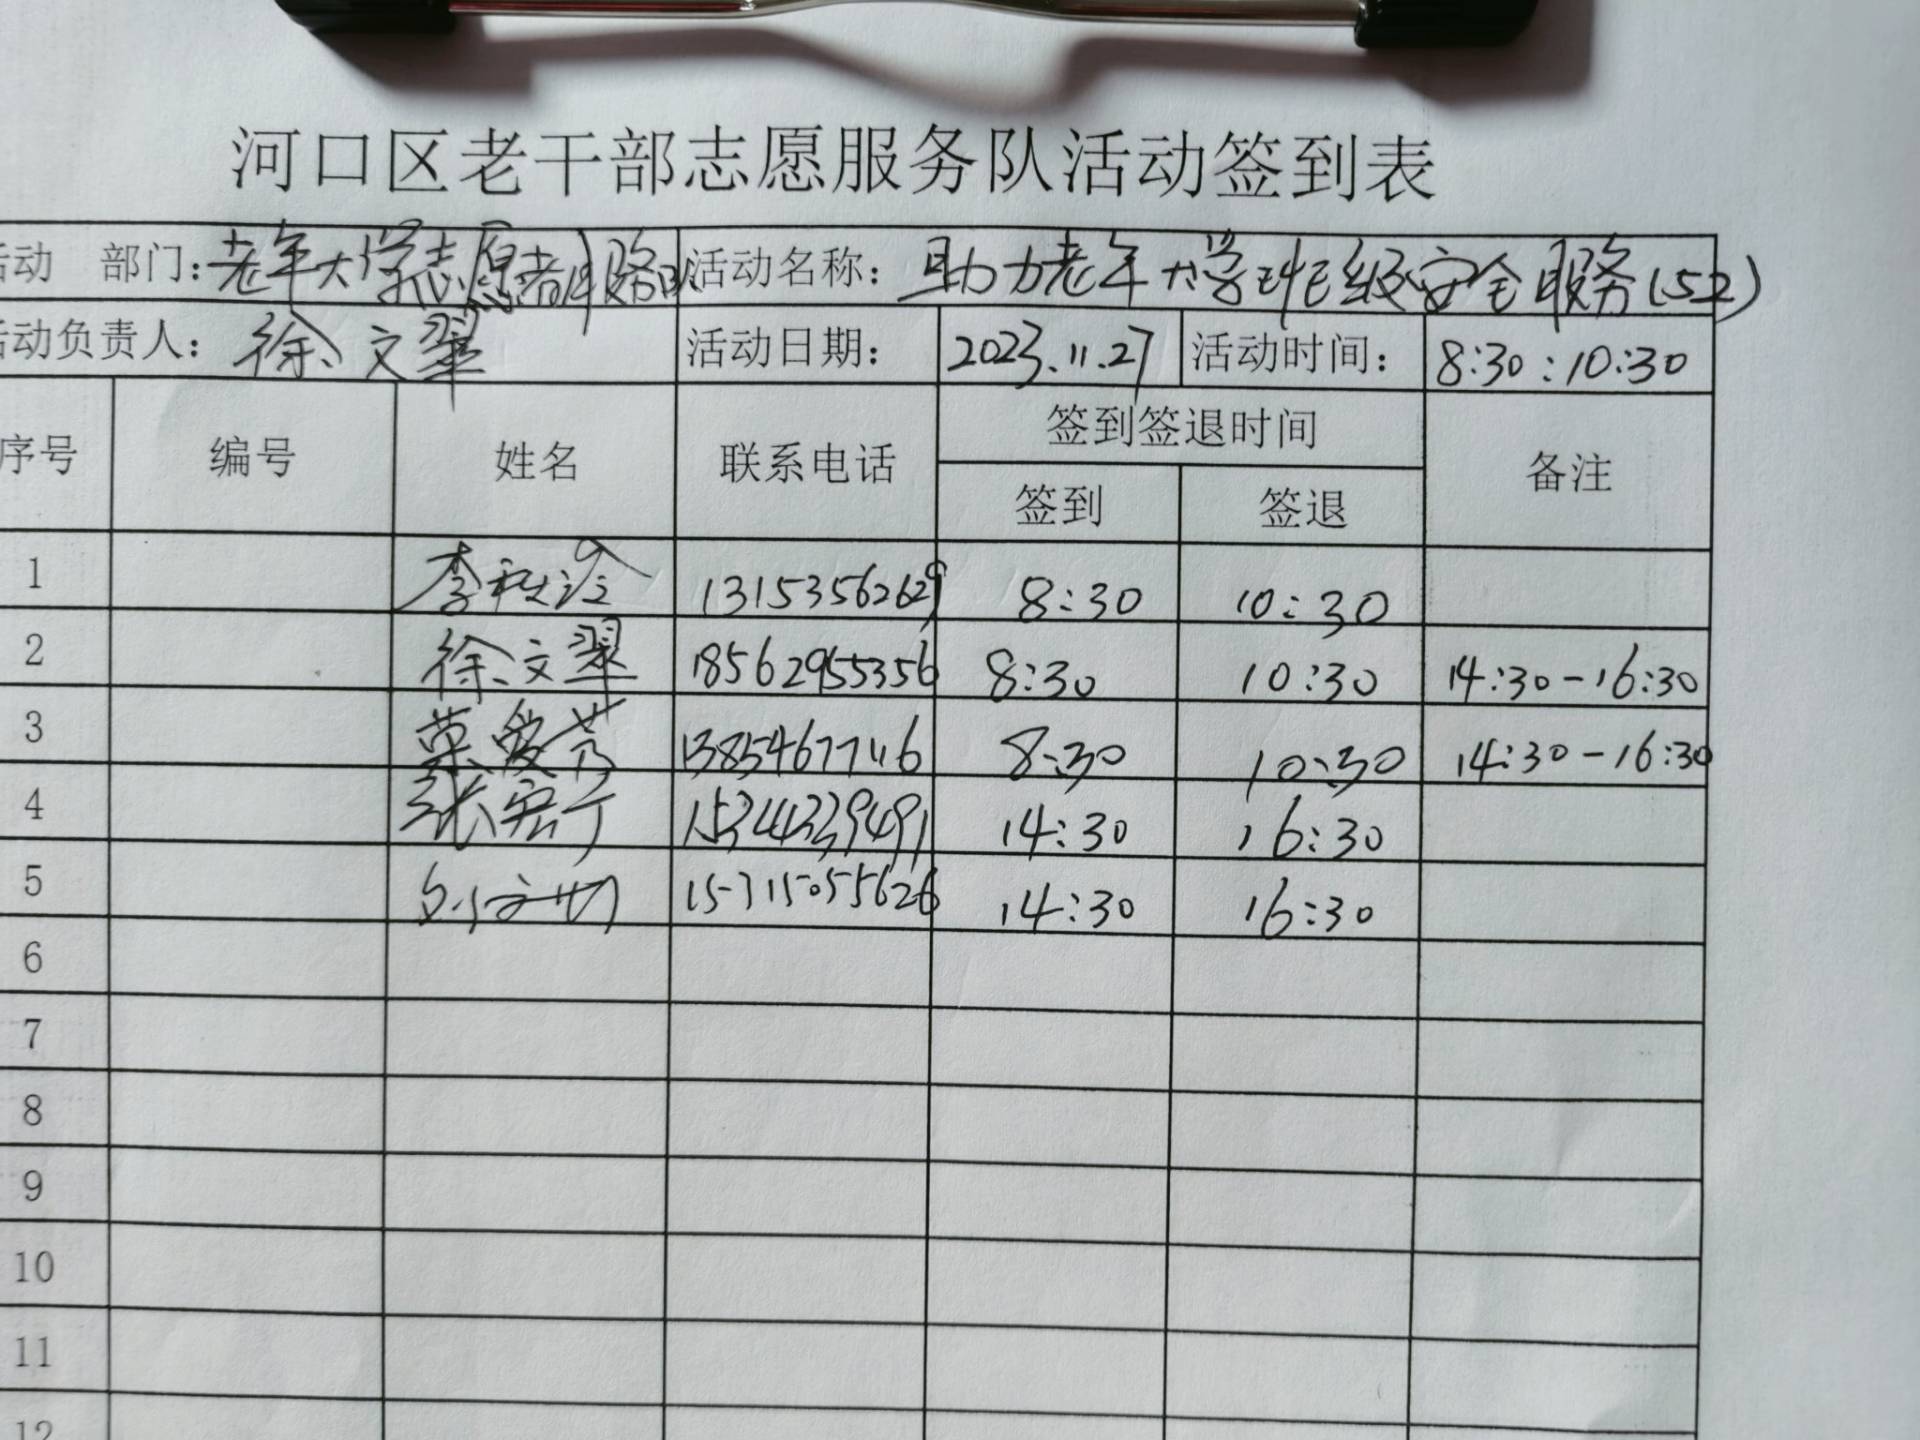 河口区老干部志愿服务队活动签到表
活动 部门：老年大学志愿者服务队 活动名称：助力老年大学班级安全服务(52)
活动负责人：徐文翠 活动日期：2023.11.27 活动时间：8:30:10:30
序号 编号 姓名 联系电话 签到签退时间 备注
签到 签退
1 13153562629 8:30 10:30
2 徐文翠 18562955356 8:30 10:30 14:30-16:30
3 13854677116 8:30 10:30 14:30-16:30
4 15344339491 14:30 16:30
5 15715055626 14:30 16:30
6
7
8
9
10
11
12